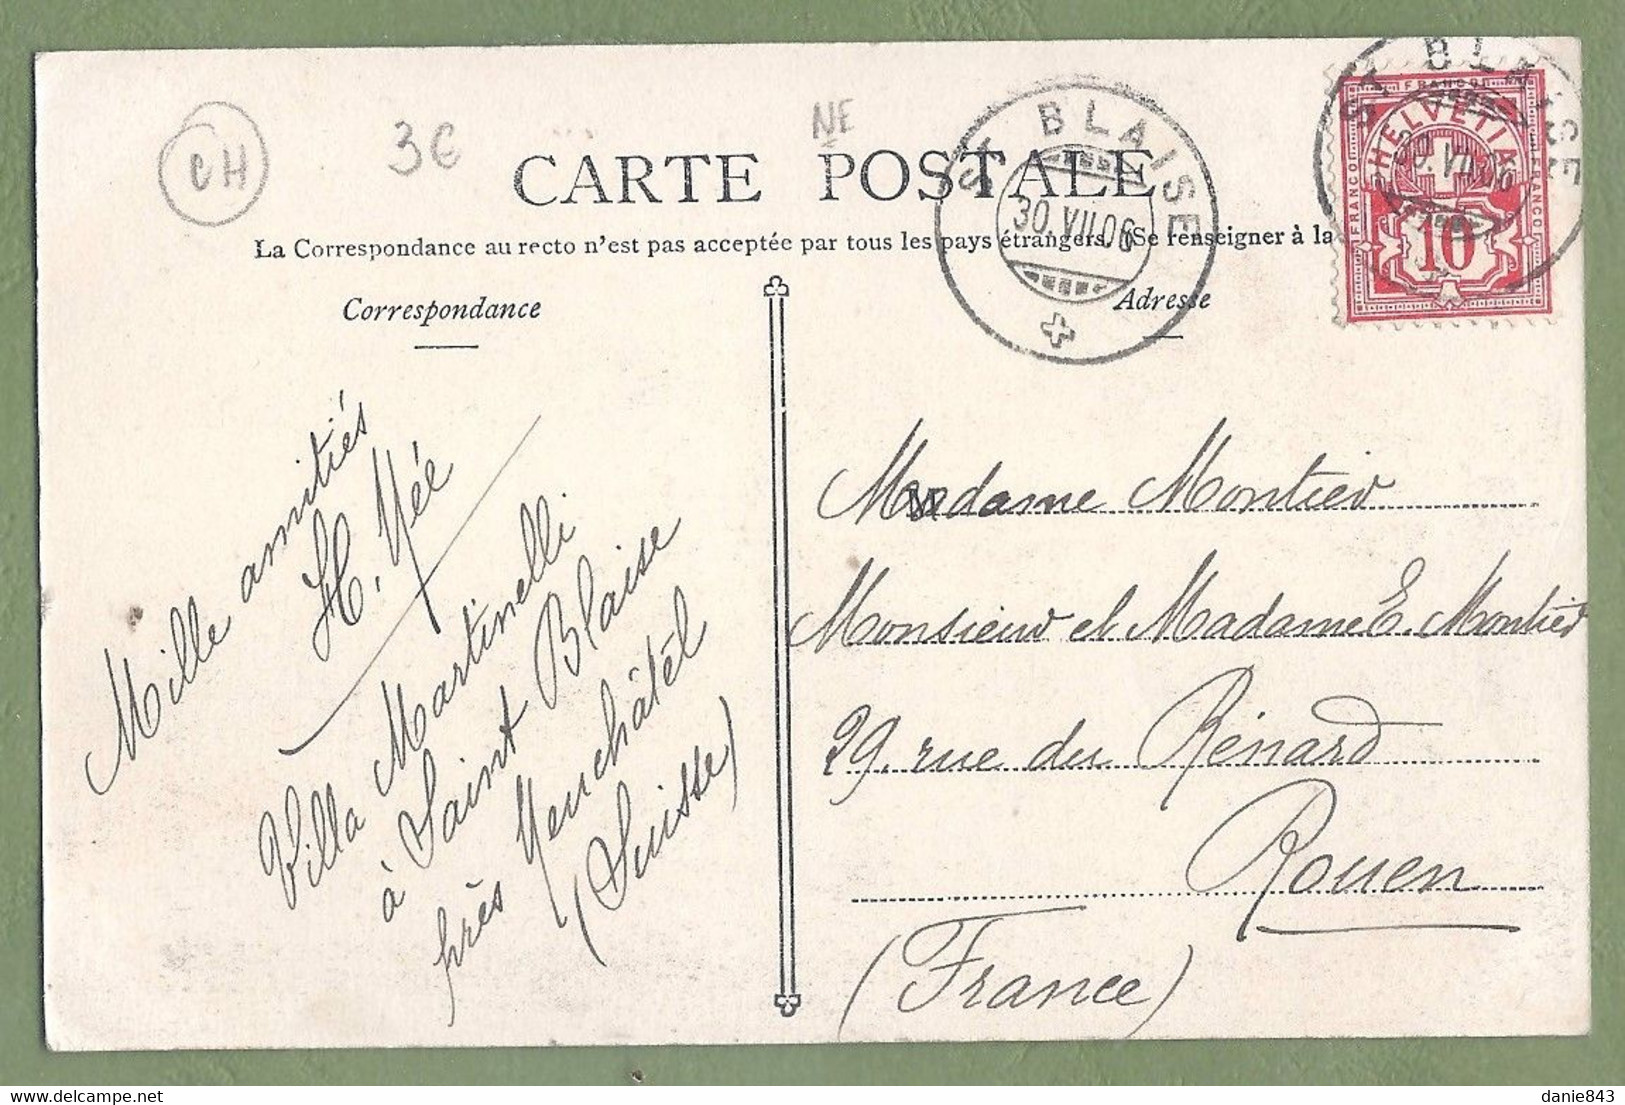 CH
3€
NE
CARTE POSTALE
La Correspondance au recto n'est pas acceptée par tous les pays étrangers. (Se renseigner à la
ST BLAISE
30.VII.06
ST BLAISE
30.VII.06
FRANCO
HELVETIA
FRANCO
FRANCO
10
Correspondance
Adresse
Mille amitiés
H. Mée
Villa Martinelli
à Saint Blaise
près Neuchâtel
(Suisse)
Madame Montier
Monsieur et Madame E. Montier
29, rue du Rénard
Rouen
(France)
danie843